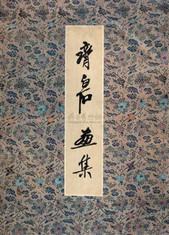 齊白石畫集